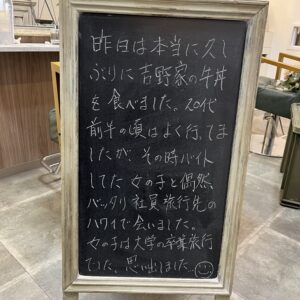 昨日は本当に久し
ぶりに吉野家の牛丼
を食べました。20代
前半の頃はよく行ってま
したが、その時バイト
してた女の子と偶然
バッタリ社員旅行先の
ハワイで会いました。
女の子は大学の卒業旅行
でした。思い出しました…